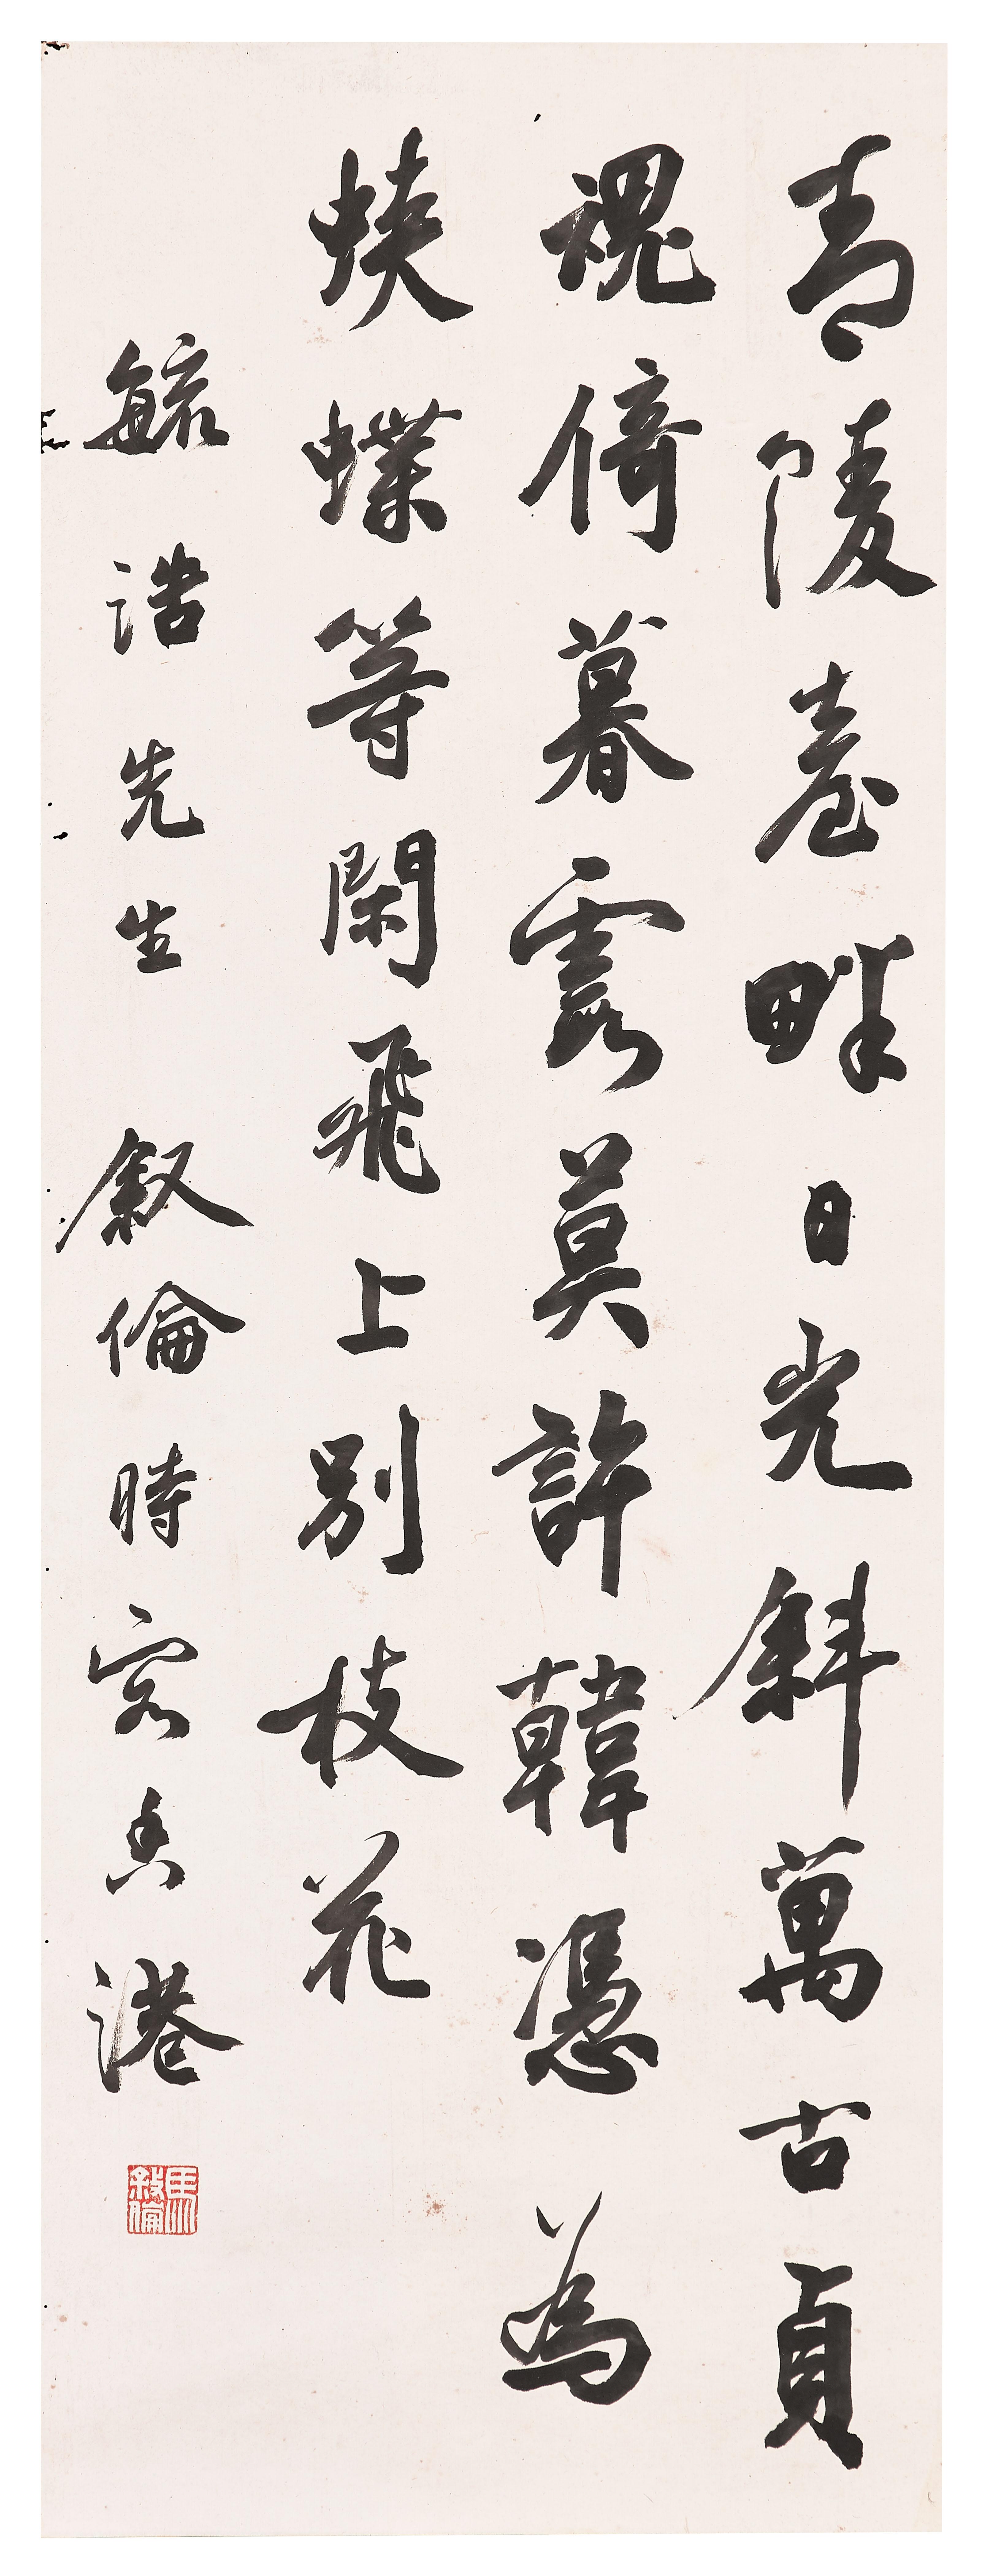 青陵臺畔日光斜萬古貞
魂倚暮霞莫許韓憑為
蛺蝶等閑飛上別枝花
毓浩先生 叙倫時客香港
馬叙倫